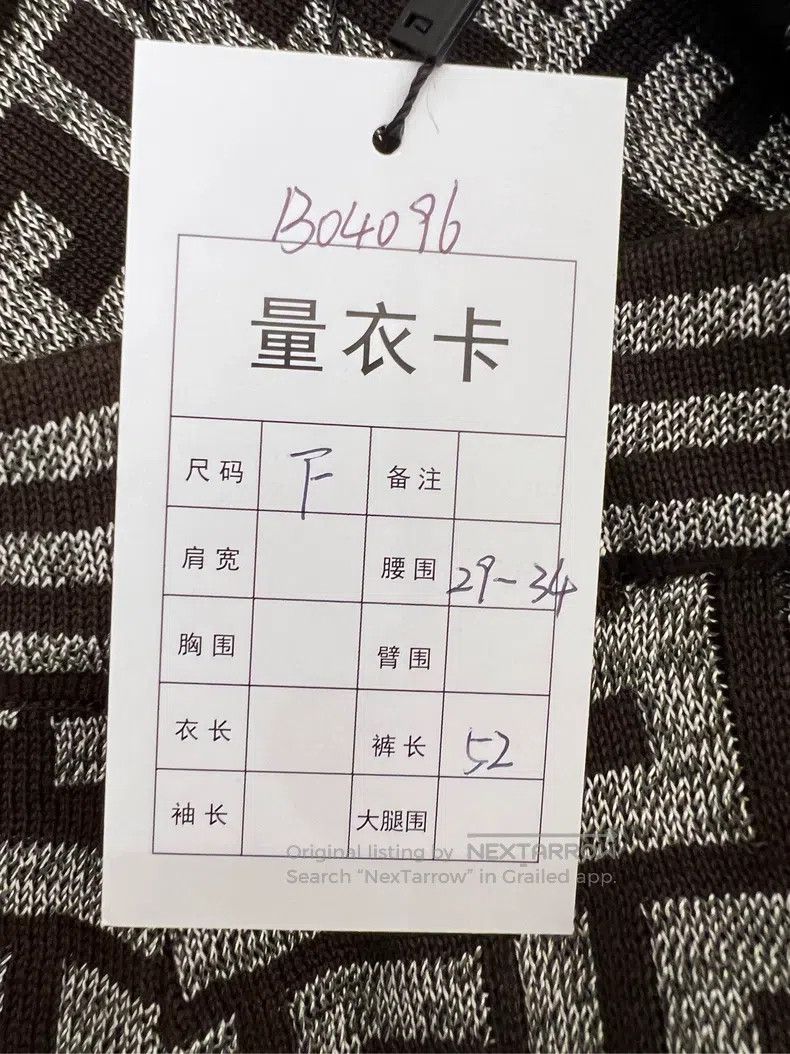 B04096
量衣卡
尺码 F 备注
肩宽 腰围 29-34
胸围 臂围
衣长 裤长 52
袖长 大腿围
Original listing by NEXTARROW
Search "NexTarrow" in Grailed app.